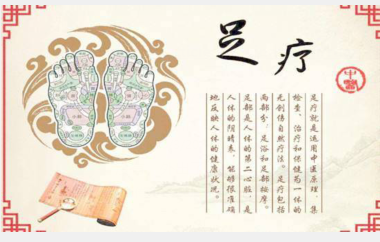 足疗
中醫
足疗就是运用中医原理，集
检查、治疗和保健为一体的
无创伤自然疗法。足疗包括
两部分，足浴和足部按摩。
足部是人体的第二心脏，是
人体的阴晴表，能够很准确
地反映人体的健康状况。